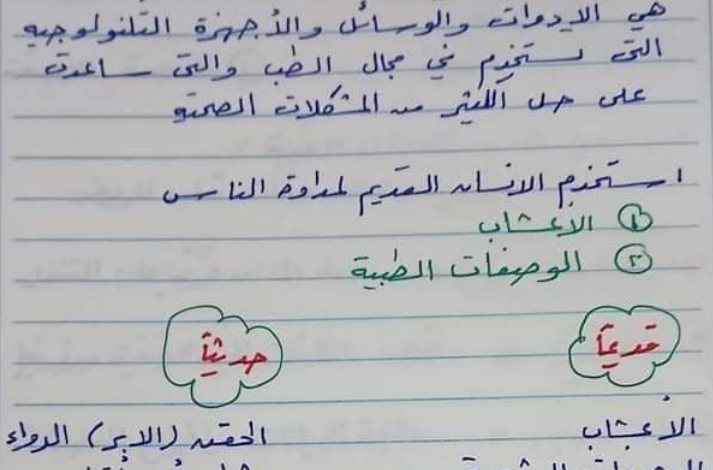 هي الادوات والوسائل والأجهزة التكنولوجيه
التى تستخدم في مجال الطب والتى ساعدت
على حل الكثير من المشكلات الصحيه
استخدم الانسان القديم لمداوة الناس
① الأعشاب
② الوصفات الطبية
قديماً
حديثاً
الأعشاب
الحقن (الابر) الدواء